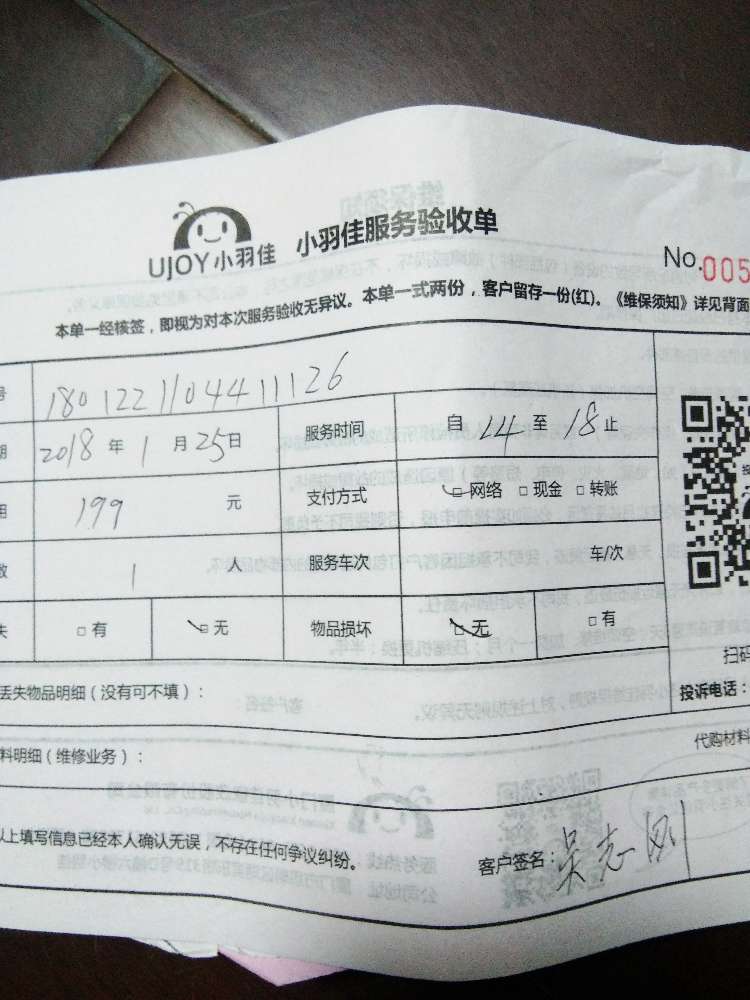 UJOY小羽佳 小羽佳服务验收单
No.005
本单一经核签，即视为对本次服务验收无异议。本单一式两份，客户留存一份(红)。《维保须知》详见背面
号 180122110441126
期 2018年1月25日 服务时间 自14至18止
用 199元 支付方式 □网络 □现金 □转账
数 1人 服务车次 车/次
失 □有 □无 物品损坏 □无 □有
扫码
丢失物品明细（没有可不填）： 投诉电话：
料明细（维修业务）： 代购材料
以上填写信息已经本人确认无误，不存在任何争议纠纷。 客户签名：吴志刚